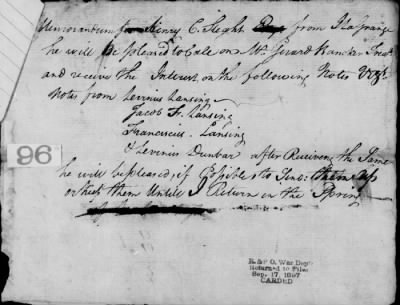 Memorandum for Henry C. Sleght from I LaGrange
he will be pleased to Cale on Mr. Gerard Bancker Treasr
and receive the Interest on the following Notes Viz.
Notes from Levinus Lansing
Jacob F. Lansing
Franciscus Lansing
& Levinus Dunbar after Receiving the Same
he will be pleased, if Possible to Send them up
or keep them Untill I Return in the Spring
96
R. & P. O. War Dept.
Returned to Files
Sep. 17, 1887
CARDED